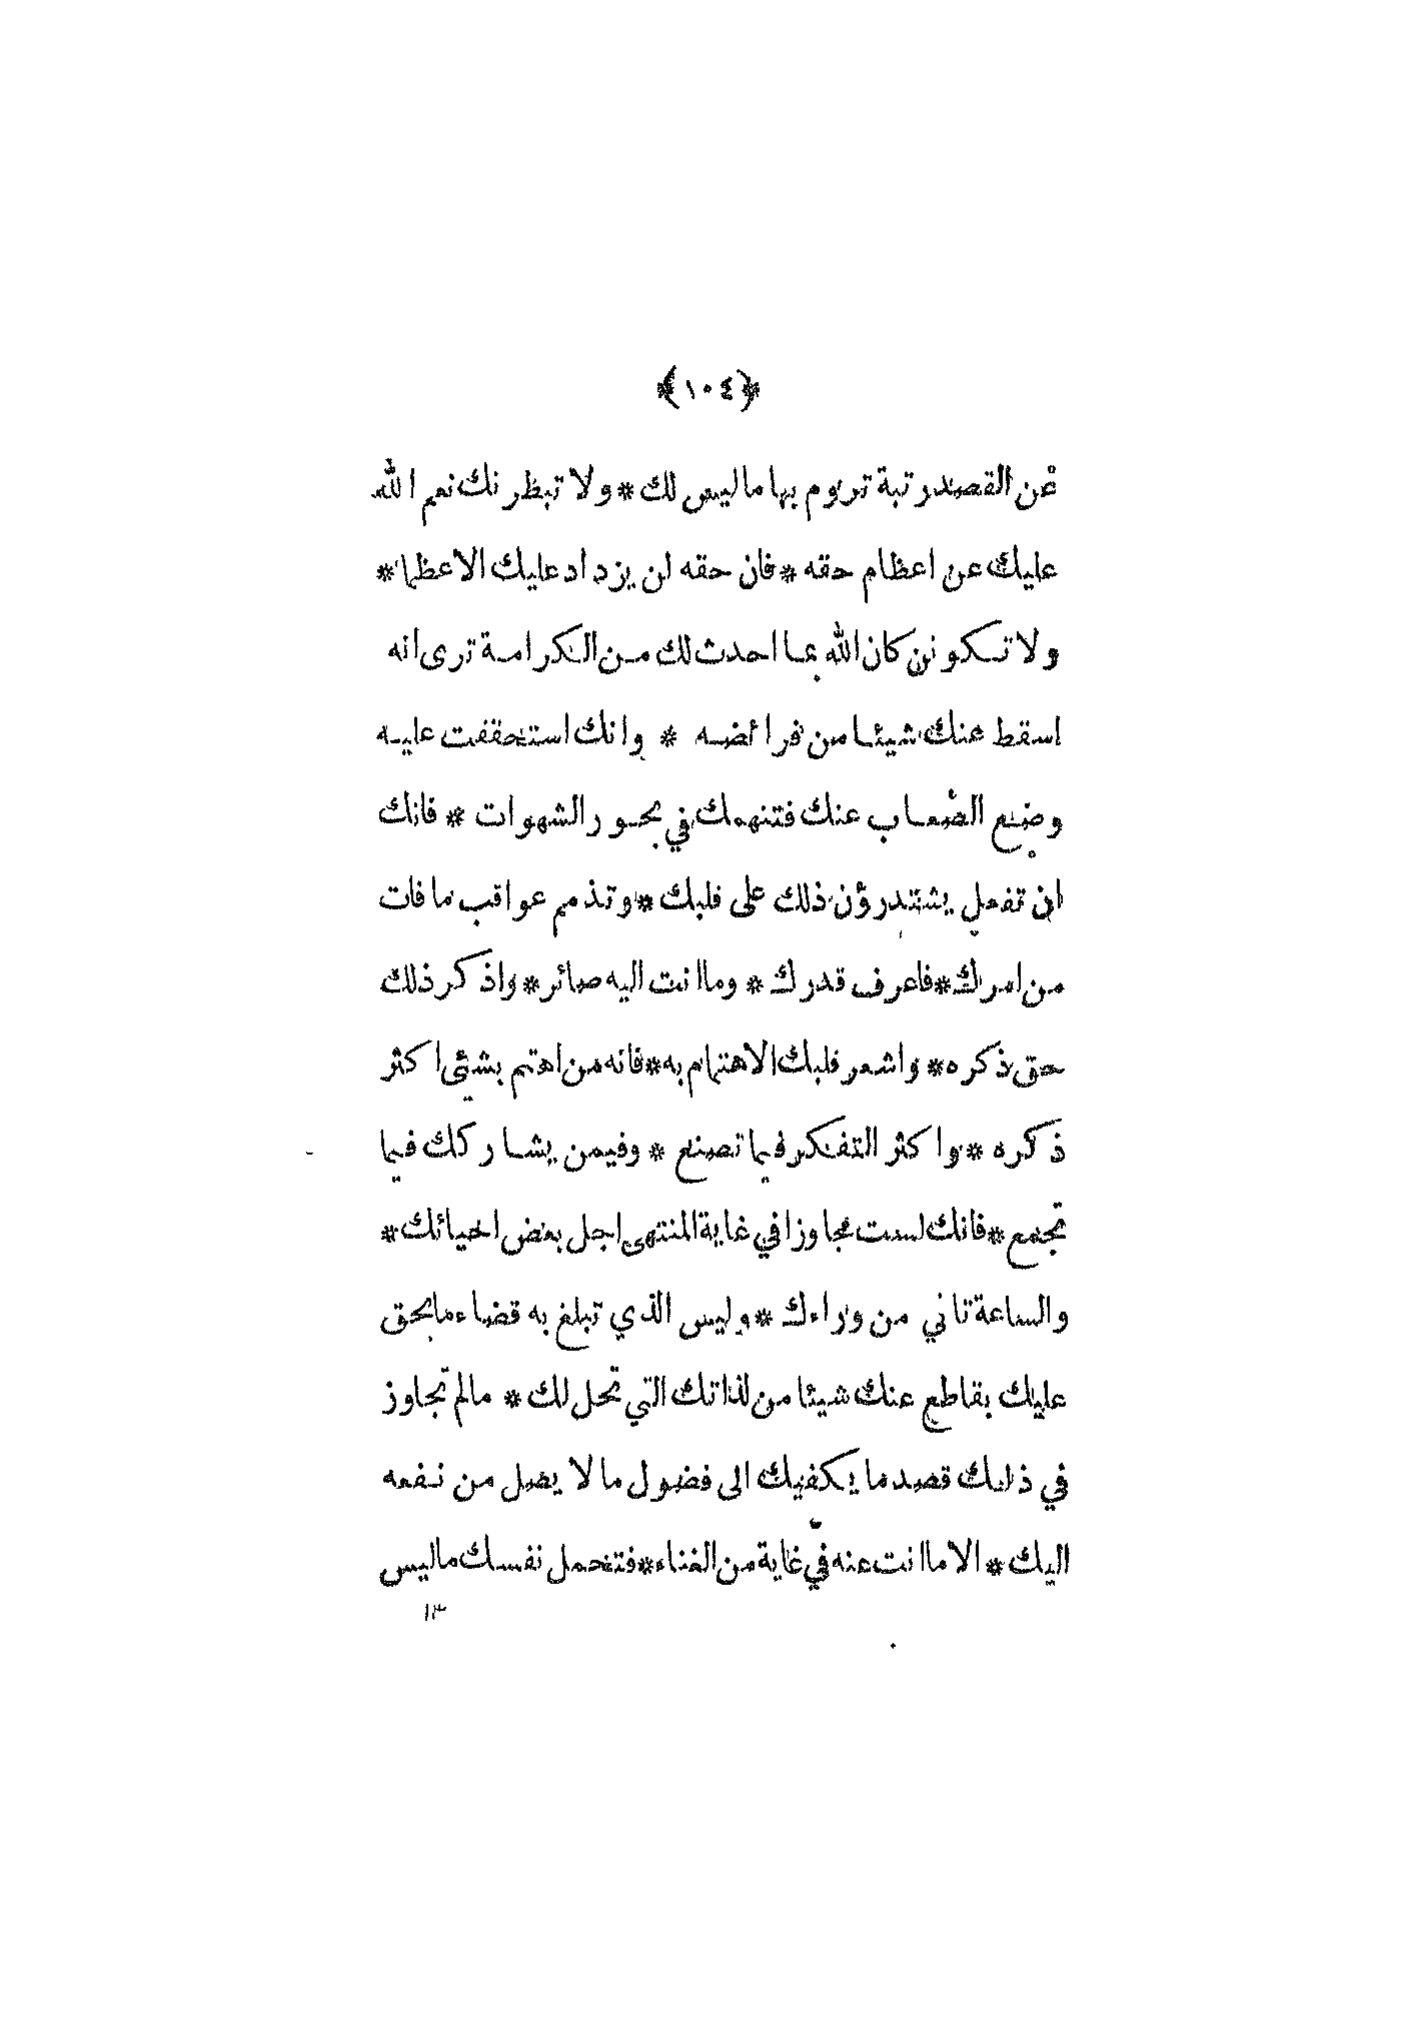 ﴿١٠٤﴾
عن القصد رتبة تروم بها ما ليس لك * ولا تبظرنك نعم الله
عليك عن اعظام حقه * فان حقه لن يزداد عليك الاعظما *
ولا تكونن كان الله بما احدث لك من الكرامة ترى انه
اسقط عنك شيئا من فرائضه * وانك استحققت عليه
وضع الصعاب عنك فتنهمك في بحور الشهوات * فانك
ان تفعل يشتد رؤن ذلك على قلبك * وتذمم عواقب ما فات
من امرك * فاعرف قدرك * وما انت اليه صائر * واذكر ذلك
حق ذكره * واشعر قلبك الاهتمام به * فانه من اهتم بشئ اكثر
ذكره * واكثر التفكر فيما تصنع * وفيمن يشاركك فيما
تجمع * فانك لست مجاوزا في غاية المنتهى اجل بعض احيائك *
والساعة تاتي من وراءك * وليس الذي تبلغ به قضاء ما يحق
عليك بقاطع عنك شيئا من لذاتك التي تحل لك * مالم تجاوز
في ذلك قصد ما يكفيك الى فضول ما لا يصل من نفعه
اليك * الا ما انت عنه في غاية من الغناء * فتحمل نفسك ما ليس
١٣